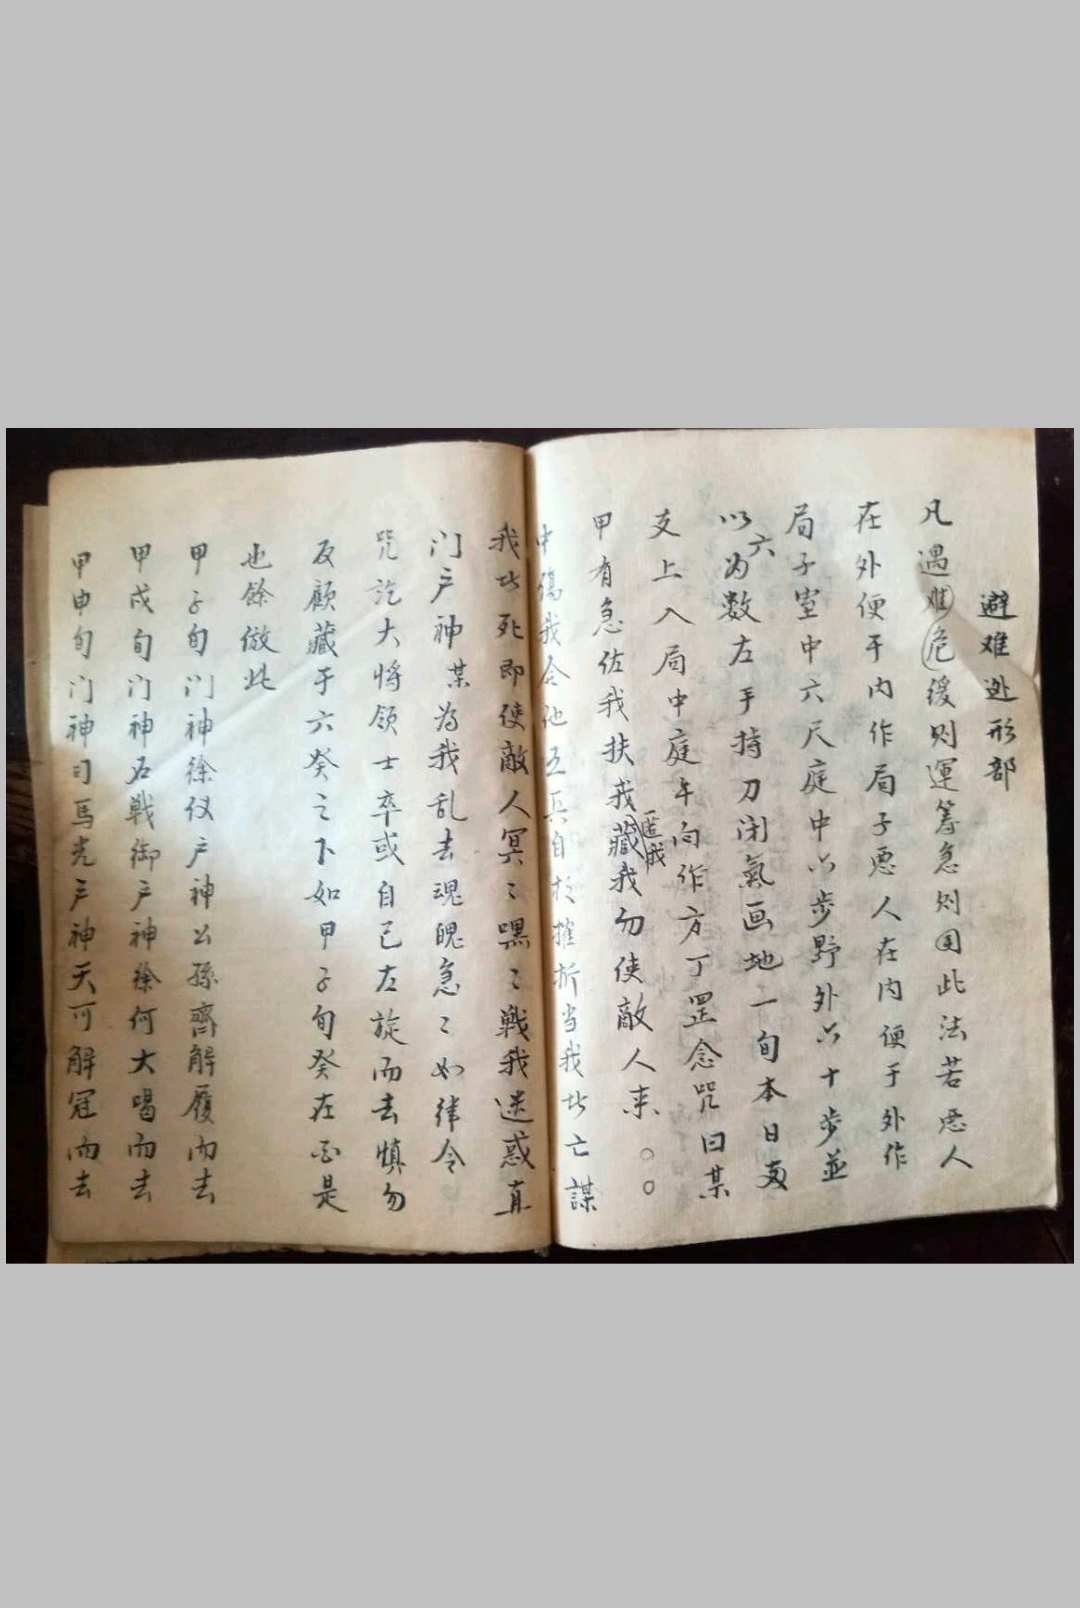 避难逃形部
凡遇难危缓则運筹急则用此法若恶人
在外便于内作局子恶人在内便于外作
局子室中六尺庭中六步野外六十步並
以六为数左手持刀闭氣画地一旬本日
支上入局中庭年向作方丁罡念咒曰某
甲有急佐我扶我藏我匿我勿使敵人来○○
中傷我令他五兵自於摧折当我者亡謀
我者死即使敵人冥々嘿々戦我迷惑直
门户神某為我乱去魂魄急々如律令
咒讫大将领士卒或自己左旋而去慎勿
反顧藏于六癸之下如甲子旬癸在酉是
也餘倣此
甲子旬门神徐仪户神公孫齊解履而去
甲戌旬门神石戦御户神徐何大喝而去
甲申旬门神司馬光户神天可解冠而去